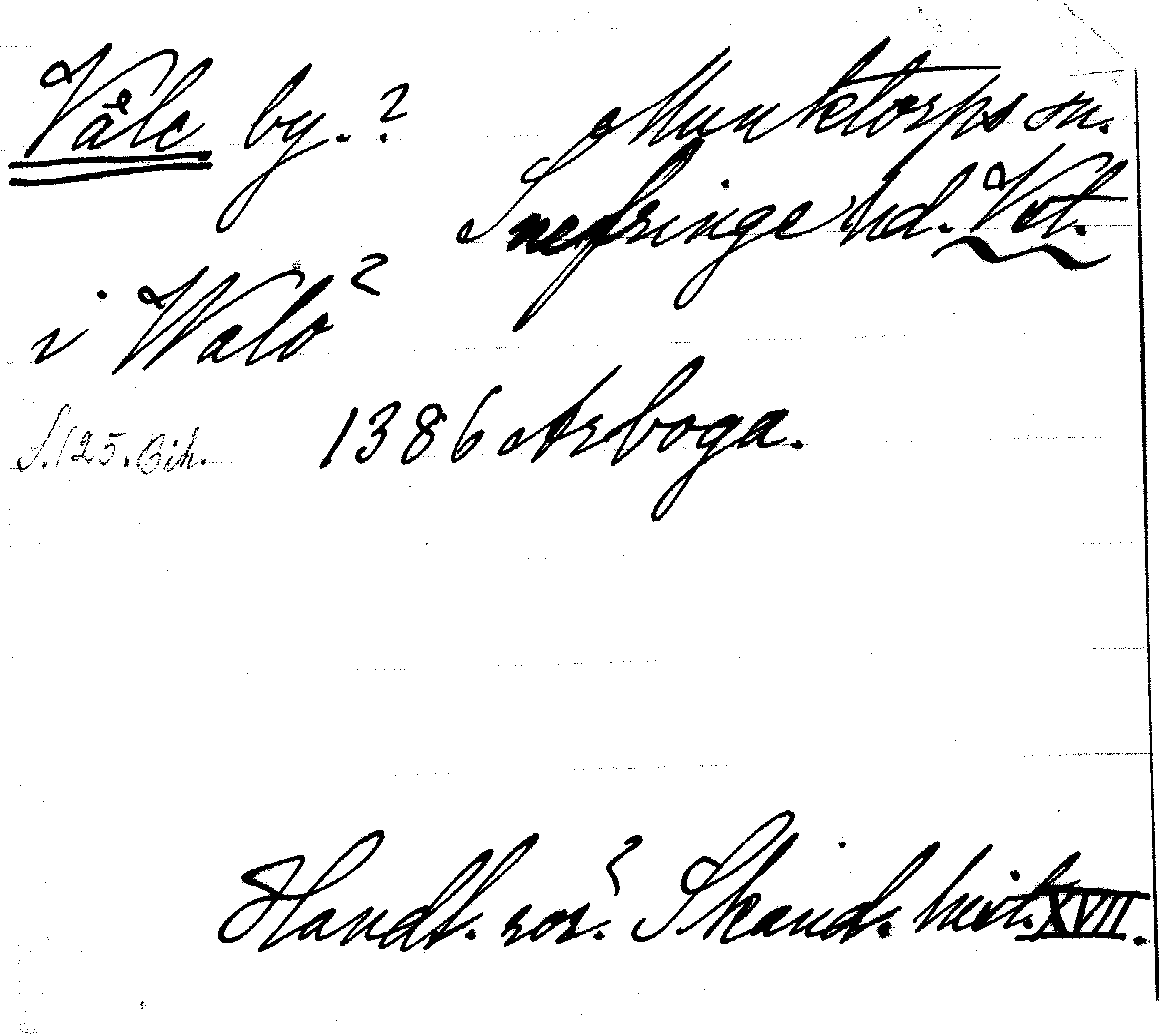 Våle by. ? Munktorps sn.
Snefringe hd. Vstm.
i Walö
S. 125. Bih. 1386 Arboga.
Handl. rör. Skand. hist. XVII.